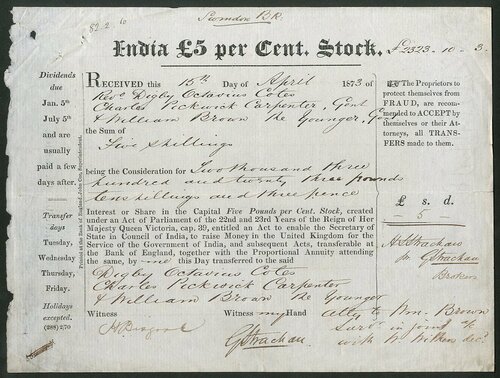 Swindon BR.
82.2.60
India £5 per Cent. Stock. £2323-10-3.
Dividends
due
Jan. 5th
July 5th
and are
usually
paid a few
days after.
Transfer
days
Tuesday,
Wednesday
Thursday,
Friday.
Holidays
excepted.
(288)270
RECEIVED this 15th Day of April 1873 of
Revd. Digby Octavius Cotes
Charles Pickwick Carpenter, Gent
& William Brown the Younger, Gent
the Sum of
Five Shillings
being the Consideration for Two thousand three
hundred and twenty three pounds
ten shillings and three pence
Interest or Share in the Capital Five Pounds per Cent. Stock, created
under an Act of Parliament of the 22nd and 23rd Years of the Reign of Her
Majesty Queen Victoria, cap. 39, entitled an Act to enable the Secretary of
State in Council of India, to raise Money in the United Kingdom for the
Service of the Government of India, and subsequent Acts, transferable at
the Bank of England, together with the Proportional Annuity attending
the same, by me this Day Transferred to the said
Digby Octavius Cotes
Charles Pickwick Carpenter
& William Brown the Younger
Witness
Witness my Hand
G Strachan
The Proprietors to
protect themselves from
FRAUD, are recom-
mended to ACCEPT by
themselves or their At-
torneys, all TRANS-
FERS made to them.
£ s. d.
- 5 -
Strachan
for G Strachan
Brokers
Atty to Wm. Brown
Surv. in joint a/c
with